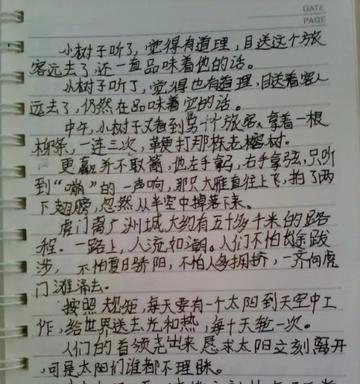 DATE
PAGE
小树子听了，觉得有道理，目送这个旅
客远去了，还一直品味着他的话。
小树子听了，觉得也有道理，目送着客人
远去了，仍然在品味着它的话。
中午，小树子又看到另一个旅客，拿着一根
柳条，一连三次，鞭打那株老榕树。
更羸并不取箭，他左手拿弓，右手拿弦，只听
到"嘣"的一声响，那只大雁直往上飞，拍了两
下翅膀，忽然从半空中掉落下来。
虎门离广州城大约有五十多千米的路
程。一路上，人流如潮。人们不怕长途跋
涉，不怕夏日骄阳，不怕人多拥挤，一齐向虎
门滩涌去。
按照规矩，每天要有一个太阳到天空中工
作，给世界送去光和热，每十天轮一次。
人们的首领尧出来恳求太阳立刻离开
，可是太阳们谁都不理睬。